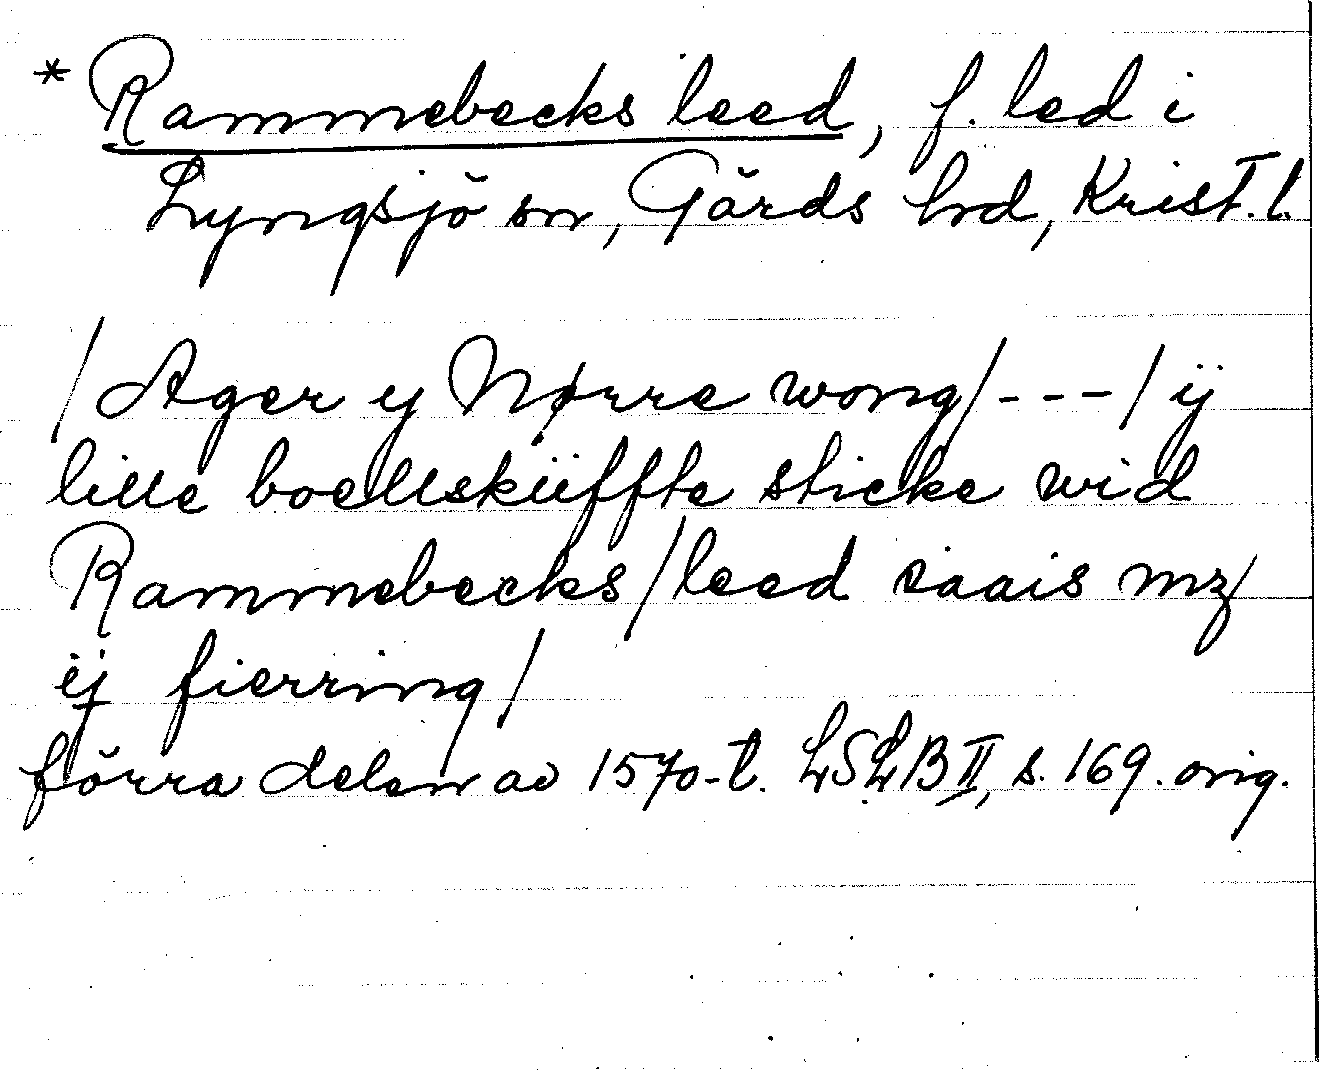 * Rammebecks leed, f. led i
Lyngsjö sn, Gärds hd, Krist. l.
/Ager y Nørre wong/---/ ÿ
lille boellskiiffte sticke wid
Rammebecks/leed saais mz/
ÿ fierring/
förra delen av 1570-t. LSLB II, s. 169. orig.